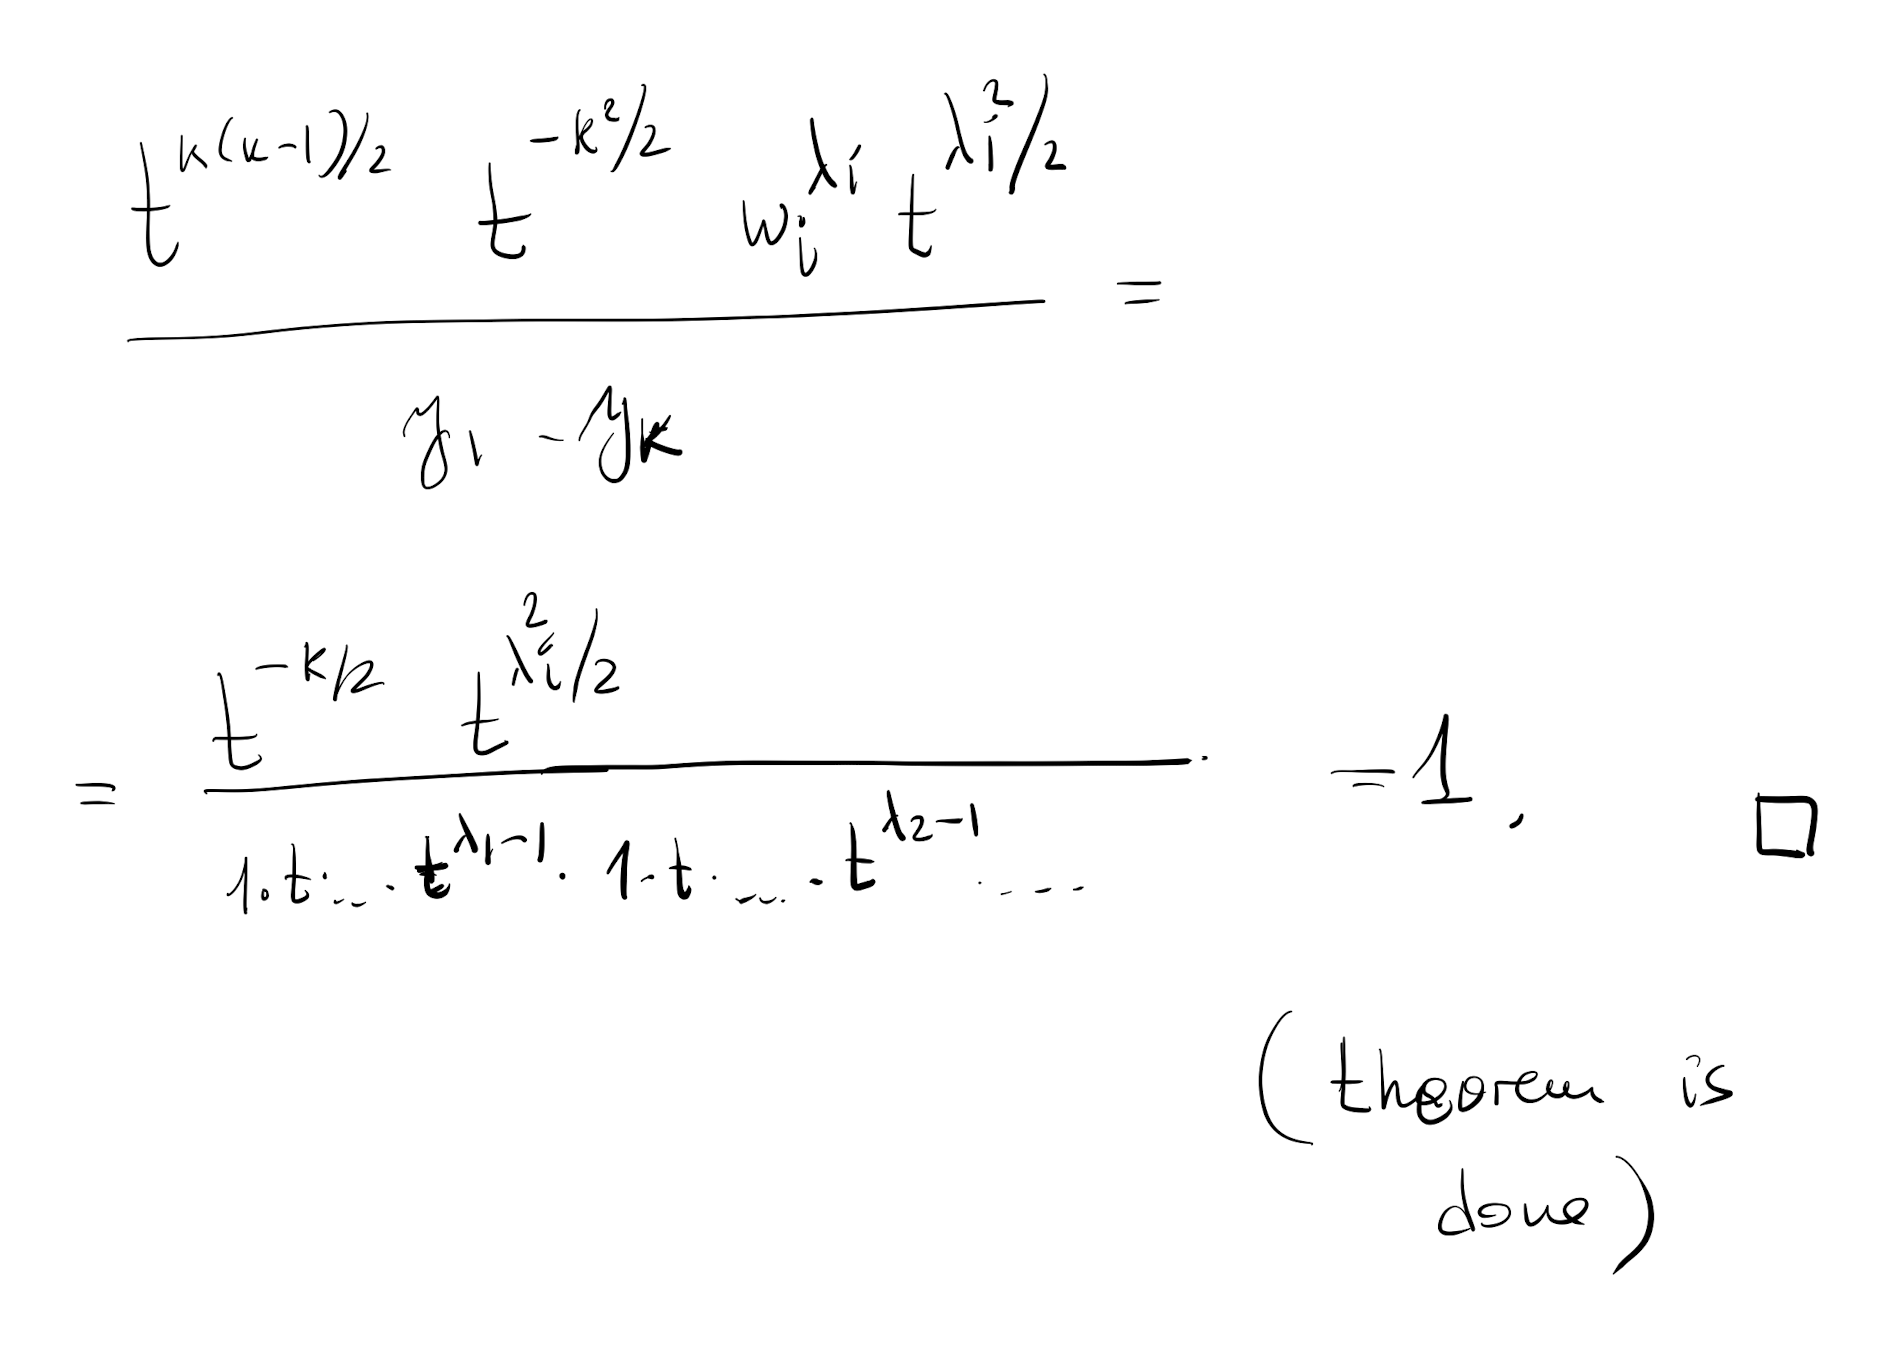 \frac{t^{k(k-1)/2} \; t^{-k^2/2} \; w_i^{\lambda_i} \, t^{\lambda_i^2/2}}{y_1 \cdots y_k} =
= \frac{t^{-k/2} \; t^{\lambda_i^2/2}}{1 \cdot t \cdot \ldots \cdot t^{\lambda_1-1} \cdot 1 \cdot t \cdot \ldots \cdot t^{\lambda_2-1} \cdot \ldots} = 1. □
(theorem is
done)